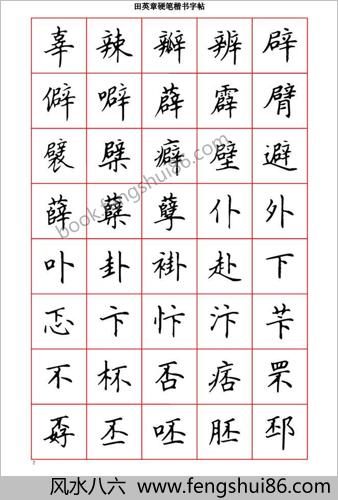 田英章硬笔楷书字帖
辜 辣 瓣 辨 辟
僻 噼 薜 霹 臂
襞 檗 癖 壁 避
薛 蘖 孽 仆 外
卟 卦 褂 赴 下
忑 卞 忭 汴 苄
不 杯 否 痞 罘
孬 丕 呸 胚 邳
book.fengshui86.com
2
风水八六 www.fengshui86.com